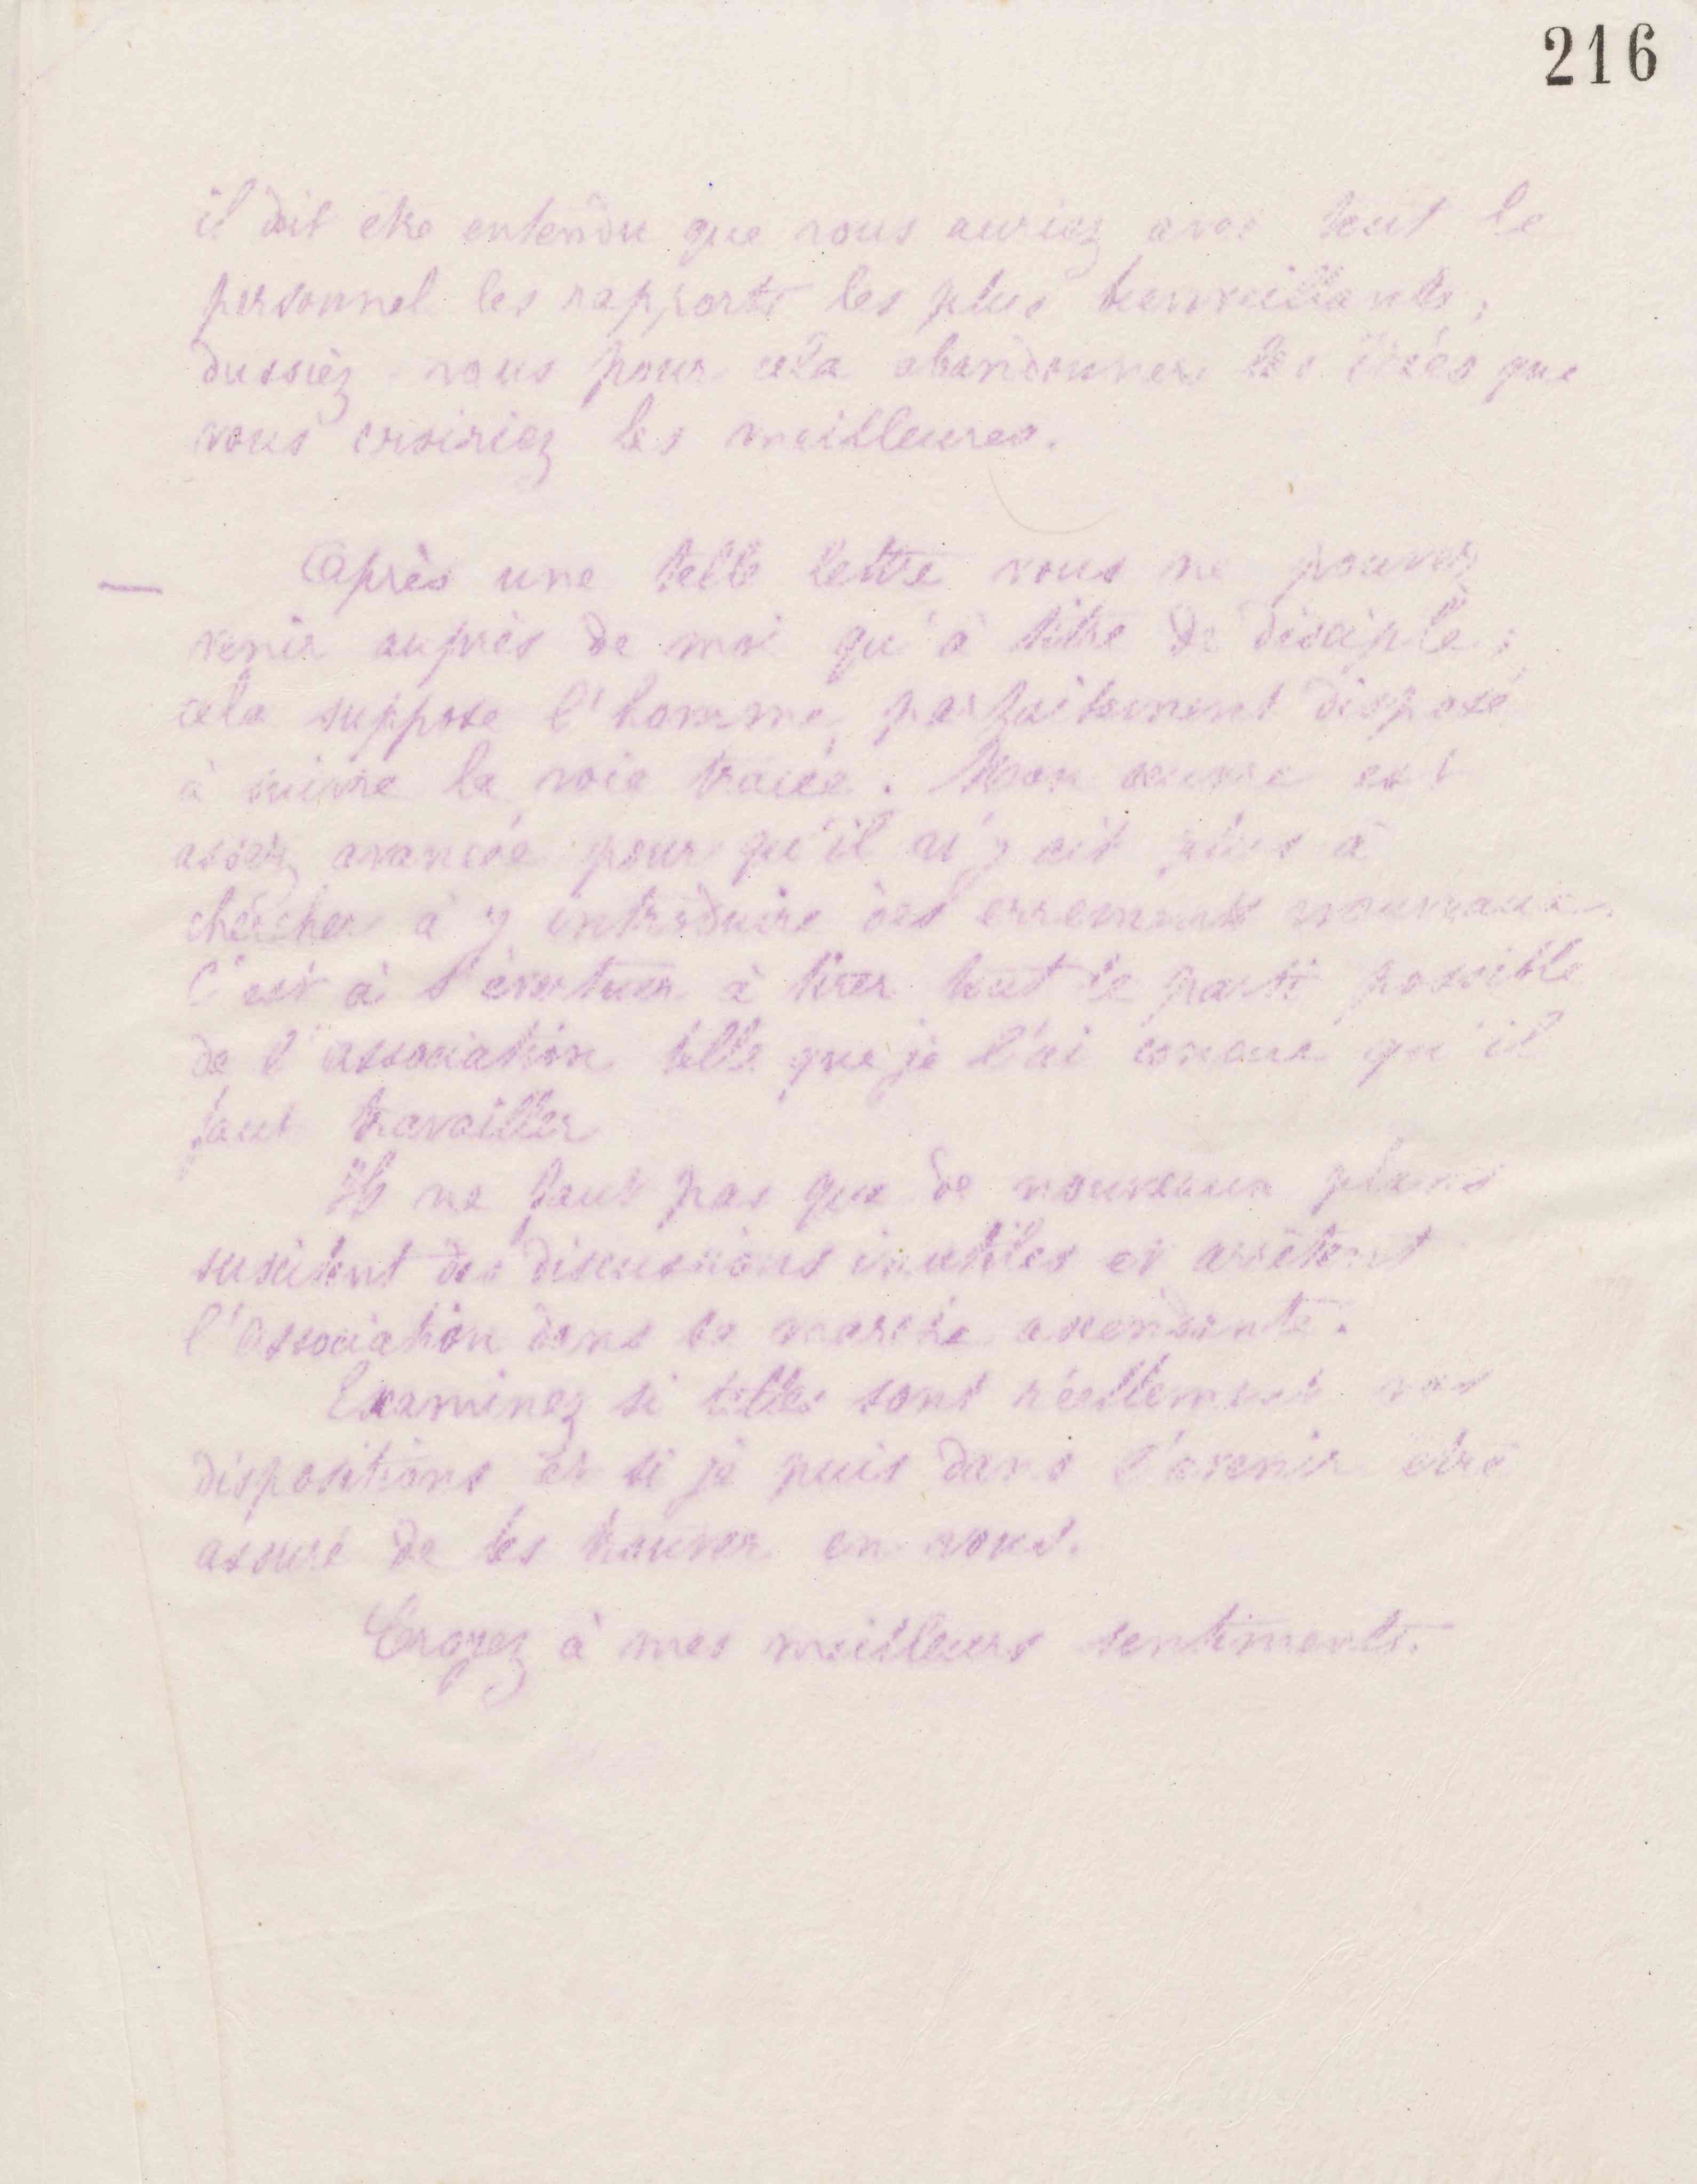 216
il doit etre entendu que vous auriez avec tout le
personnel les rapports les plus bienveillants,
dussiez-vous pour cela abandonner les idées que
vous croiriez les meilleures.
Après une telle lettre vous ne pouvez
venir auprès de moi qu'à titre de disciple;
cela suppose l'homme parfaitement disposé
à suivre la voie tracée. Mon œuvre est
assez avancée pour qu'il n'y ait plus à
chercher à y introduire des errements nouveaux.
C'est à s'évertuer à tirer tout le parti possible
de l'association telle que je l'ai conçue qu'il
faut travailler
Il ne faut pas que de nouveaux plans
suscitent des discussions inutiles et arrêtent
l'Association dans sa marche ascendante.
Examinez si telles sont réellement vos
dispositions et si je puis dans l'avenir être
assuré de les trouver en vous.
Croyez à mes meilleurs sentiments.